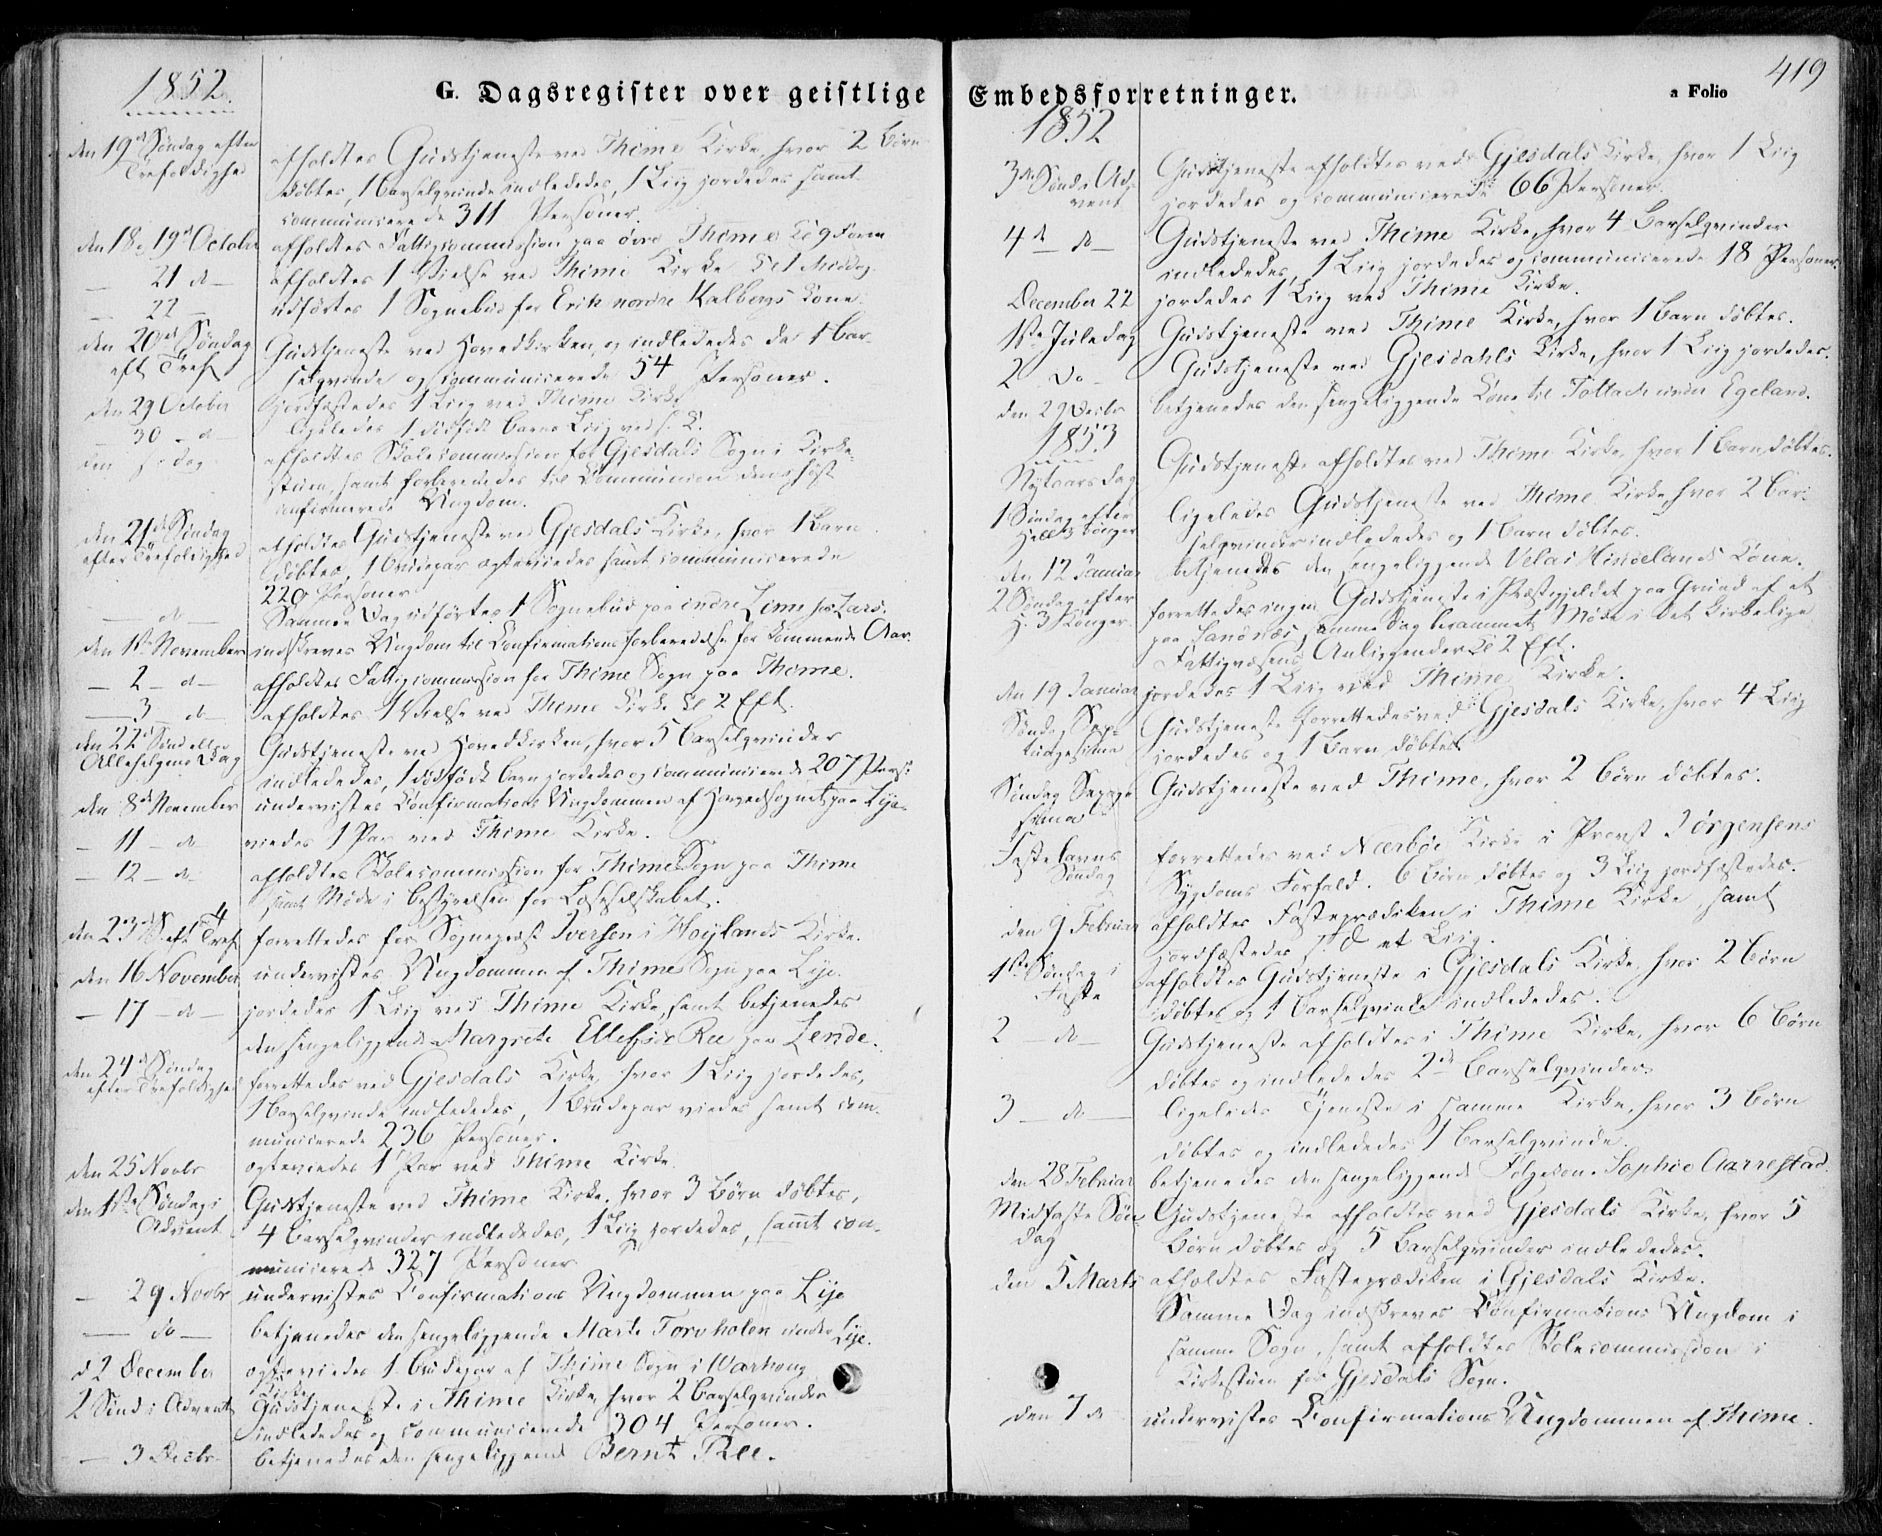 1852.
G. Dagsregister over geistlige
den 19de Søndag efter
Trefoldighed
afholdtes Gudstjeneste ved Thime Kirke hvor 2 Børn
døbtes, 1 Barselqvinde indlededes, 1 Liig jordedes samt
communicerede 311 Personer.
den 18 og 19de October afholdtes Fattigcommission paa øvre Thime Kl 9 Form
— 21 d — afholdtes 1 Vielse ved Thime Kirke Kl 1 Middag.
— 22 — udførtes 1 Sognebud for Erik nordre Kalbergs Kone.
den 20de Søndag
eft Tref.
Gudstjeneste ved Hovedkirken, og indlededes der 1 Bar-
selqvinde og communicerede 54 Personer.
den 29 October jordfæstedes 1 Liig ved Thime Kirke
— 30 – d — ligeledes 1 dødfødt Barns Liig ved s. K.
den s. dag afholdtes Skolecommission for Gjesdals Sogn i Kirke-
stuen, samt forberededes til Communion den i høst
confirmerede Ungdom.
den 21de Søndag
efter Trefoldighed
afholdtes Gudstjeneste ved Gjesdals Kirke, hvor 1 Barn
døbtes, 1 Brudepar ægteviedes samt communicerede
220 Personer.
— d — Samme Dag udførtes 1 Sognebud paa indre Lime hos Lars.
den 1ste November indskreves Ungdom til Confirmations Forberedelse for kommende Aar.
— 2 – d — afholdtes Fattigcommission for Thime Sogn paa Thime.
— 3 d — afholdtes 1 Vielse ved Thime Kirke Kl 2 Eft.
den 22de Sønd eller
Allehelgens Dag
Gudstjeneste ved Hovedkirken, hvor 5 Barselqvinder
indlededes, 1 dødfødt Barn jordedes og communicerede 207 Pers:
den 8de November undervistes Confirmations Ungdommen af Hovedsognet paa Lye.
— 11 – d viedes 1 Par ved Thime Kirke.
— 12 – d – afholdtes Skolecommission for Thime Sogn paa Thime
samt Møde i Bestyrelsen for Læseselskabet.
den 23de S. eft Tref. forrettedes for Sognepræst Iversen i Høylands Kirke.
den 16 November undervistes Ungdommen af Thime Sogn paa Lye.
— 17 – d — jordedes 1 Liig ved Thime Kirke, samt betjenedes
den sengeliggende Margrete Ellefsd Ree paa Lende.
den 24de Søndag
efter Trefoldighed
forrettedes ved Gjesdals Kirke, hvor 1 Liig jordedes,
1 Barselqvinde indlededes, 1 Brudepar viedes samt com-
municerede 236 Personer.
den 25 Novbr ægteviedes 1 Par ved Thime Kirke.
den 1ste Søndag i
Advent
Gudstjeneste ved Thime Kirke, hvor 3 Børn døbtes,
4 Barselqvinder indlededes, 1 Liig jordedes, samt com-
municerede 327 Personer
— 29 Novbr undervistes Confirmations Ungdommen paa Lye
— do — betjenedes den sengeliggende Marte Torvholen under Lye.
d 2 December ægteviedes 1 Brudepar af Thime Sogn i Warhoug
Kirke
2 Sønd i Advent Gudstjeneste i Thime Kirke hvor 2 Barselqvinder
indlededes og communicerede 304 Personer.
— 3 Decbr betjenedes den sengeliggende Bernt Ree.
419
Embedsforretninger.
a Folio
1852
3de Sønd i Ad-
vent
Gudstjeneste afholdtes ved Gjesdals Kirke, hvor 1 Liig
jordedes og communicerede 66 Personer.
4de – do – Gudstjeneste ved Thime Kirke, hvor 4 Barselqvinder
indlededes, 1 Liig jordedes og communicerede 18 Personer.
December 22 jordedes 1 Liig ved Thime Kirke.
1ste Juledag Gudstjeneste ved Thime Kirke, hvor 1 Barn døbtes.
2 – do – Gudstjeneste ved Gjesdahls Kirke, hvor 1 Liig jordedes.
den 29 Decbr betjenedes den sengeliggende Kone til under Egeland.
1853
Nytaarsdag Gudstjeneste afholdtes ved Thime Kirke, hvor 1 Barn døbtes.
1 Søndag efter
Hell. 3 Konger
ligeledes Gudstjeneste ved Thime Kirke, hvor 2 Bar-
selqvinder indlededes og 1 Barn døbtes.
den 12 Januar betjenedes den sengeliggende Velas Hinselands Kone.
2 Søndag efter
H. 3 Konger
forrettedes ingen Gudstjeneste i Præstegjeldet paa Grund af et
paa Sandnæs samme Dag berammet Møde i det kirkelige
Fattigvæsens Anliggender Kl 2 Eft.
den 19 Januar jordedes 1 Liig ved Thime Kirke.
Søndag Sep-
tuagesima
Gudstjeneste forrettedes ved Gjesdals Kirke, hvor 4 Liig
jordedes og 1 Barn døbtes
Søndag Sexage-
sima
Gudstjeneste ved Thime, hvor 2 Børn døbtes.
Fastelavns
Søndag
forrettedes ved Nærbøe Kirke i Provst Jørgensens
Sygdoms Forfald. 6 Børn døbtes og 3 Liig jordfæstedes.
den 9 Februar afholdtes Fasteprædiken i Thime Kirke, samt
jordfæstedes s. D. et Liig.
1ste Søndag i
Faste
afholdtes Gudstjeneste i Gjesdals Kirke, hvor 2 Børn
døbtes og 1 Barselqvinde indlededes.
2 – do – Gudstjeneste afholdtes i Thime Kirke, hvor 6 Børn
døbtes og indlededes 2de Barselqvinder.
3 – do – ligeledes Tjeneste i samme Kirke, hvor 3 Børn
døbtes og indlededes 1 Barselqvinde.
den 28 Februar betjenedes den sengeliggende Følgekone Sophie Aarrestad.
Midfaste Søn-
dag
Gudstjeneste afholdtes ved Gjesdals Kirke, hvor 5
Børn døbtes og 5 Barselqvinder indlededes.
den 5 Marts afholdtes Fasteprædiken i Gjesdals Kirke.
Samme Dag indskreves Confirmations Ungdom i
samme Sogn, samt afholdtes Skolecommission i
Kirkestuen for Gjesdals Sogn.
den 7 d undervistes Confirmations Ungdommen af Thime.